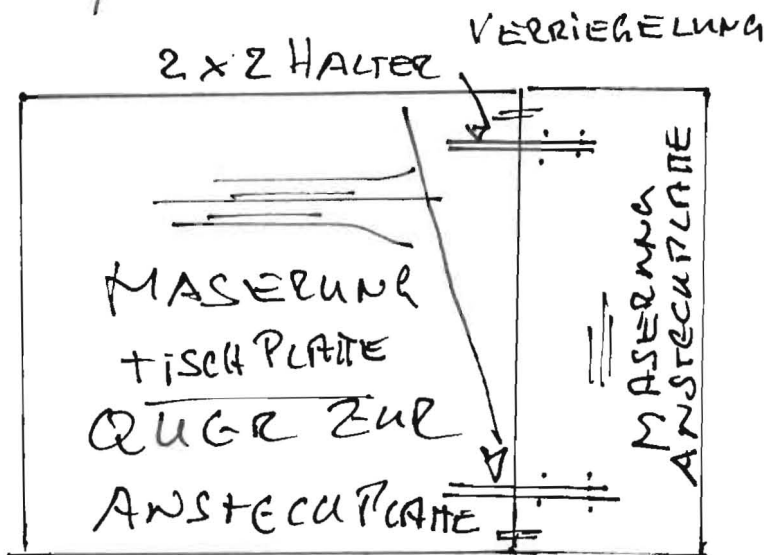 VERRIEGELUNG
2 x 2 HALTER
MASERUNG
TISCHPLATTE
QUER ZUR
ANSTECKPLATTE
MASERUNG
ANSTECKPLATTE